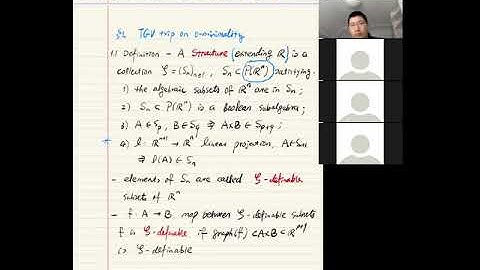 §1 TGV trip on o-minimality
1.1 Definition - A Structure (extending ℝ) is a
collection 𝒮 = (Sₙ)ₙ≥₁, Sₙ ⊂ P(ℝⁿ) satisfying.
1) the algebraic subsets of ℝⁿ are in Sₙ;
2) Sₙ ⊂ P(ℝⁿ) is a boolean subalgebra;
3) A ∈ Sₚ, B ∈ S_q ⇒ A×B ∈ Sₚ₊q;
4) l: ℝⁿ⁺¹ → ℝⁿ linear projection, A ∈ Sₙ₊₁
⇒ l(A) ∈ Sₙ
- elements of Sₙ are called 𝒮-definable
subsets of ℝⁿ
- f: A → B map between 𝒮-definable subsets
f is 𝒮-definable if graph(f) ⊂ A×B ⊂
is 𝒮-definable